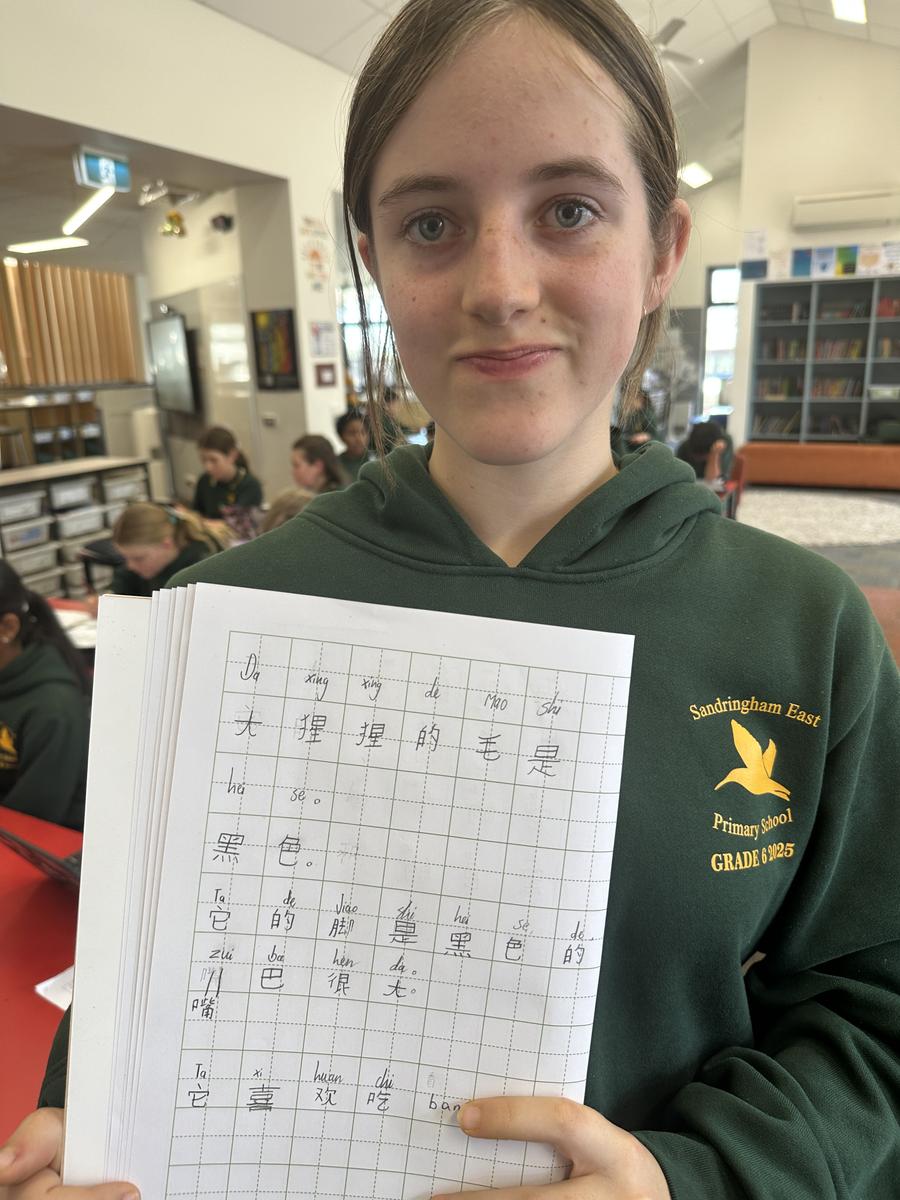 Da xing xing de Mao shi
大 猩 猩 的 毛 是
hei se。
黑 色。
Ta de jiao shi hei se de
它 的 脚 是 黑 色 的
zui ba hen da。
巴 很 大。
嘴
Ta xi huan chi
它 喜 欢 吃 ban
Sandringham East
Primary School
GRADE 6 2025